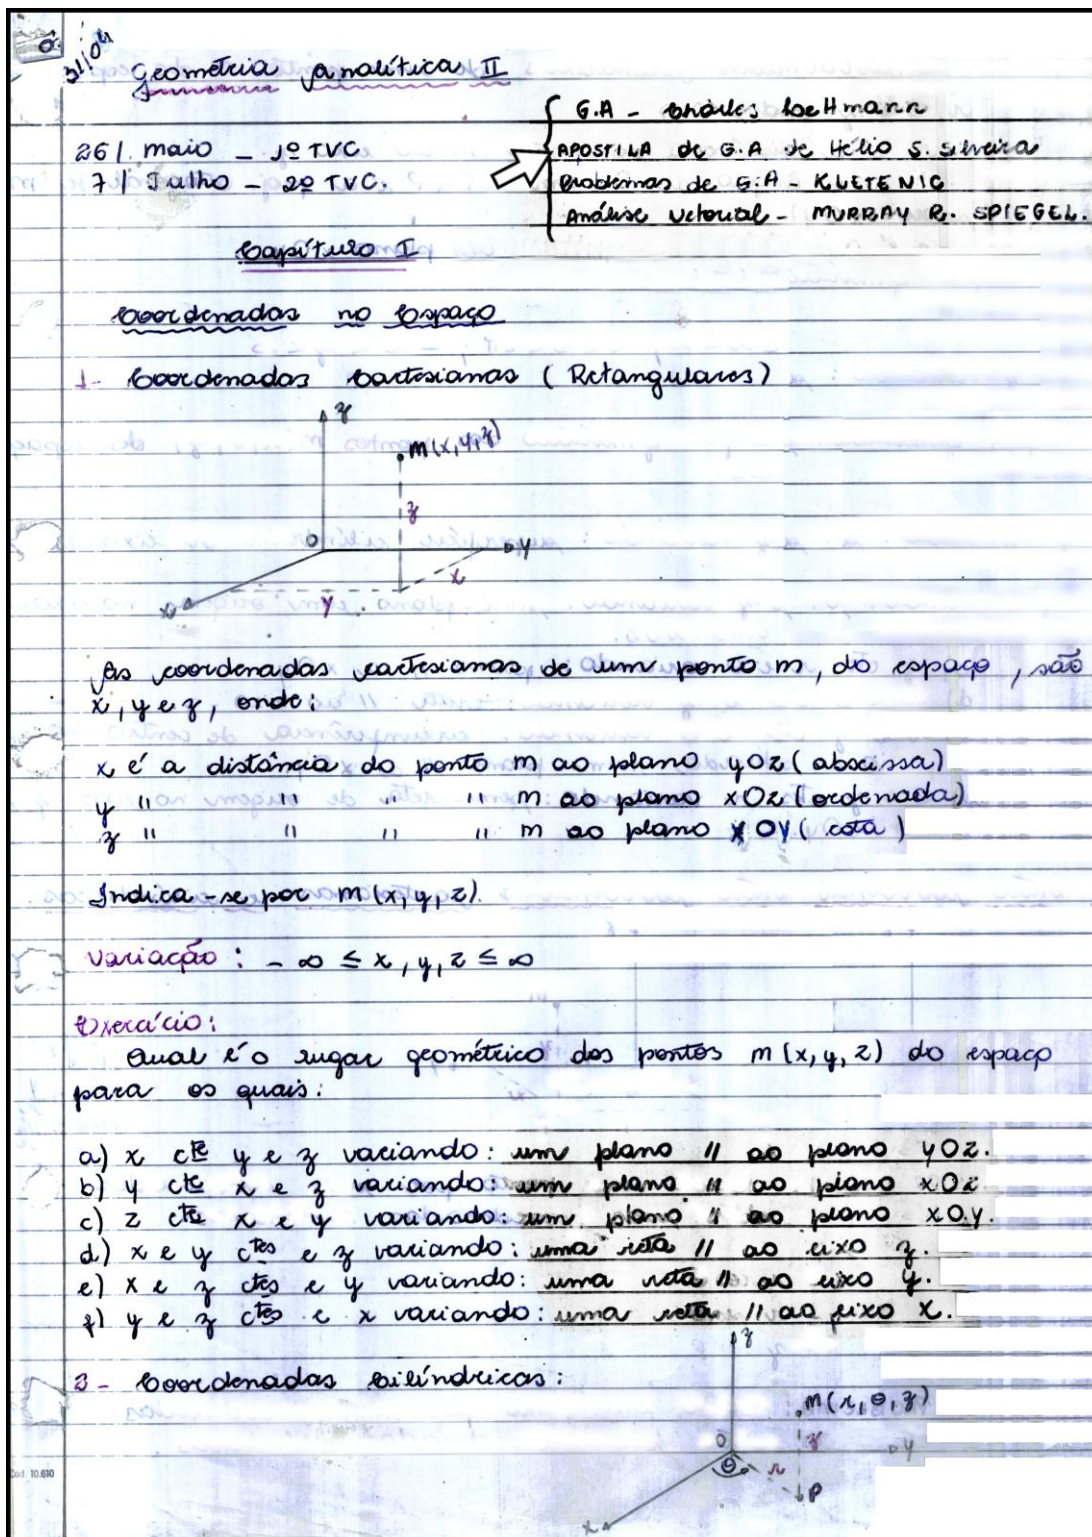 31/04
Geometria Analítica II
26/ maio - 1º TVC
7/ Julho - 2º TVC.
G.A - Charles Lehmann
APOSTILA de G.A de Hélio S. Silveira
Problemas de G.A - KLETENIC
Análise Vetorial - MURRAY R. SPIEGEL.
Capítulo I
Coordenadas no Espaço
1- Coordenadas Cartesianas (Retangulares)
z
m(x,y,z)
z
O
y
x
y
x
As coordenadas cartesianas de um ponto m, do espaço, são
x, y e z, onde:
x é a distância do ponto m ao plano yOz (abscissa)
y " " " " m ao plano xOz (ordenada)
z " " " " m ao plano xOy (cota)
Indica-se por m(x,y,z).
Variação: -∞ ≤ x, y, z ≤ ∞
Exercício:
Qual é o lugar geométrico dos pontos m(x,y,z) do espaço
para os quais:
a) x cte y e z variando: um plano // ao plano yOz.
b) y cte x e z variando: um plano // ao plano xOz
c) z cte x e y variando: um plano // ao plano xOy.
d) x e y ctes e z variando: uma reta // ao eixo z.
e) x e z ctes e y variando: uma reta // ao eixo y.
f) y e z ctes e x variando: uma reta // ao eixo x.
2- Coordenadas Cilíndricas:
z
m(r,θ,z)
O
z
y
θ
r
P
x
Cod. 10.610